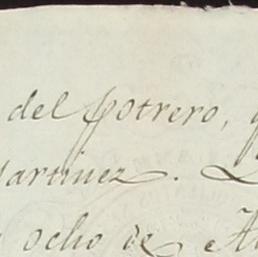 del potrero,
Martinez.
ocho de